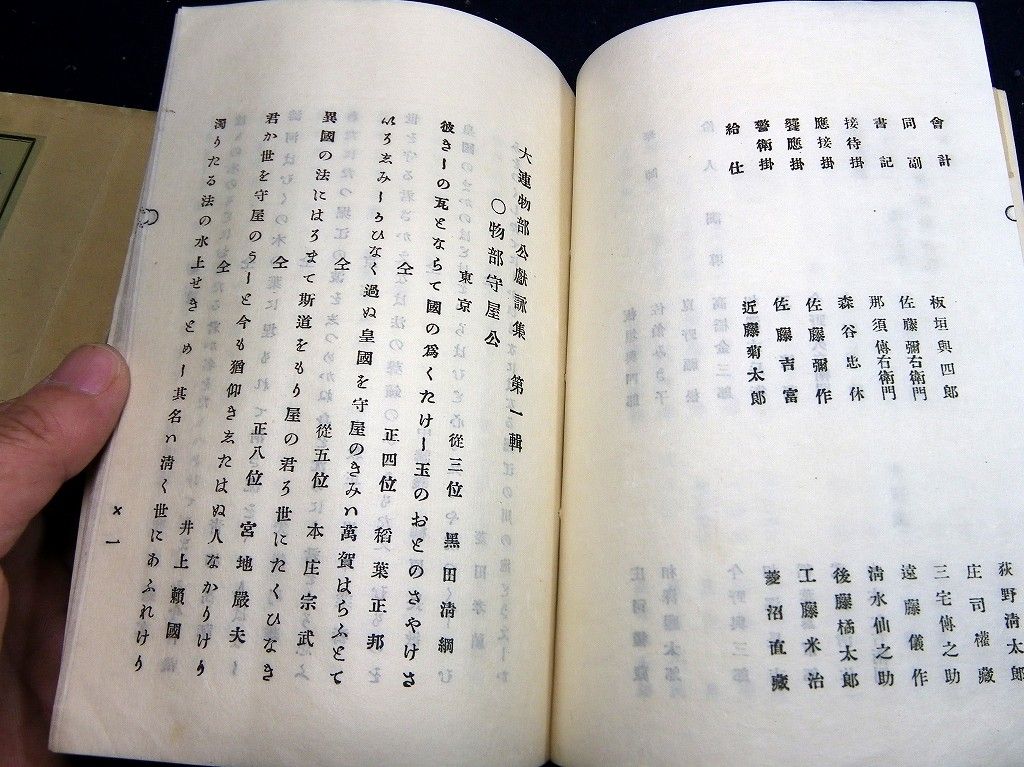 會計
同副
書記
接待掛
應接掛
饗應掛
警衛掛
給仕
板垣與四郎
佐藤彌右衛門
那須傳右衛門
森谷忠休
佐藤彌作
佐藤吉富
近藤菊太郎
荻野清太郎
庄司權藏
三宅傳之助
遠藤儀作
清水仙之助
後藤橘太郎
工藤米治
菱沼直藏
大連物部公獻詠集 第一輯
○物部守屋公
東京 從三位 黑田清綱
彼きしの瓦とならて國の爲くたけし玉のおとのさやけさ
仝 正四位 稻葉正邦
いろゑみしうひなく過ぬ皇國を守屋のきみハ萬賀はらふとて
仝 從五位 本庄宗武
異國の法にはろまて斯道をもり屋の君ろ世にたくひなき
仝 正八位 宮地嚴夫
君か世を守屋のうしと今も猶仰きゑたはぬ人なかりけり
仝 井上賴國
濁りたる法の水上せきとめし其名ハ淸く世にあふれけり
一